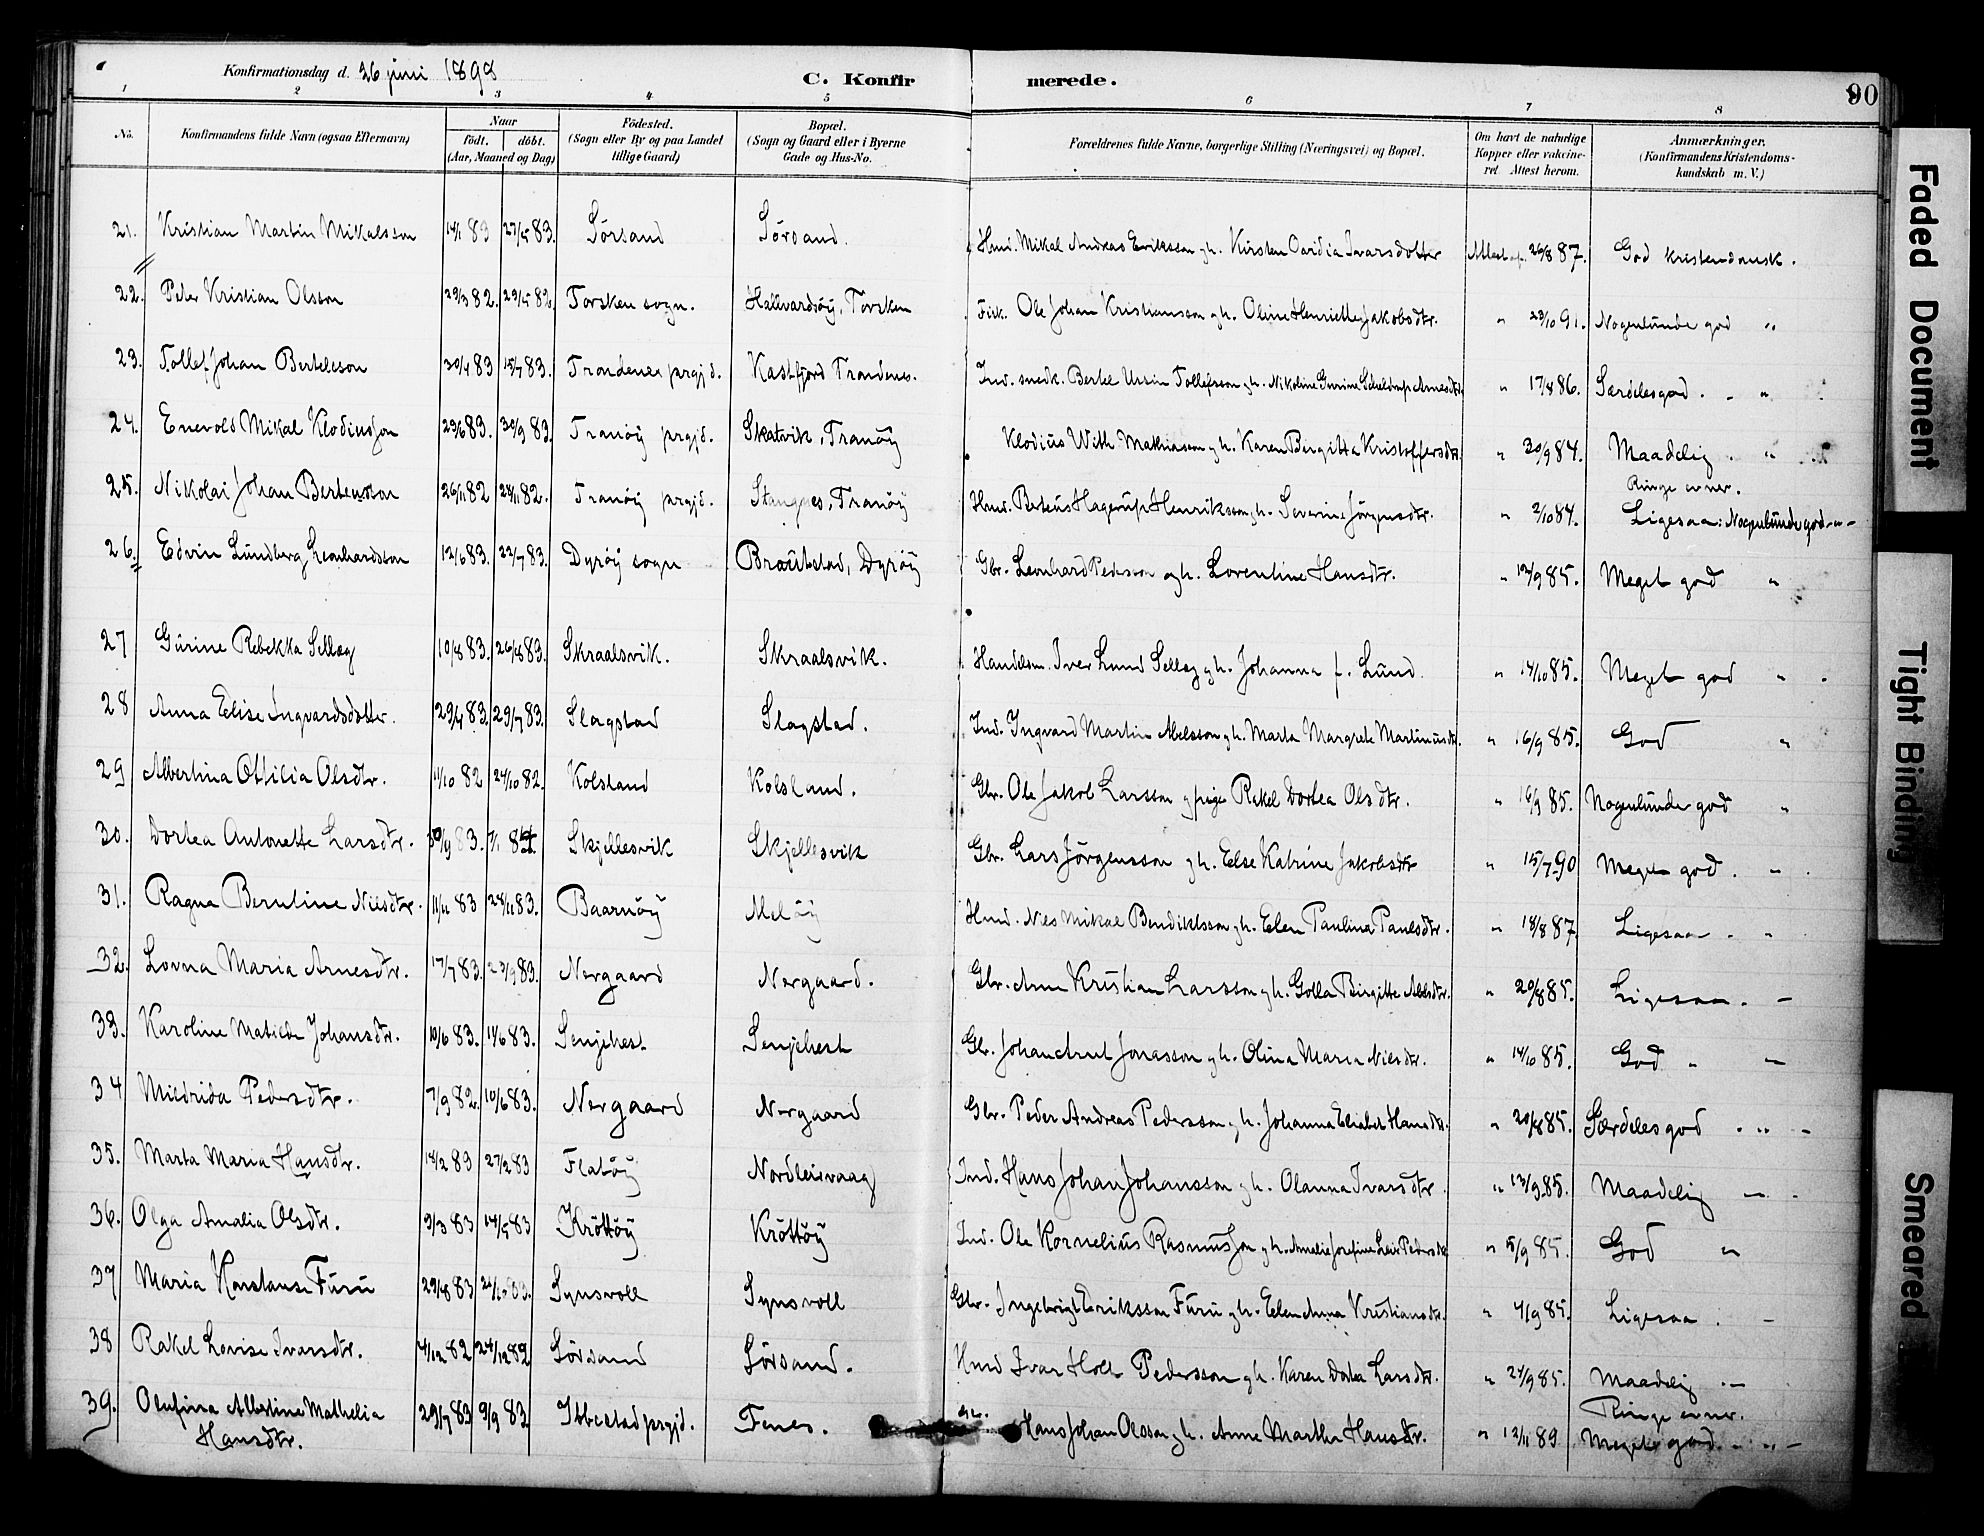 Konfirmationsdag d. 26 juni 1898
C. Konfirmerede.
90
1 2 3 4 5 6 7 8
No. | Konfirmandens fulde Navn (ogsaa Efternavn) | Naar födt. döbt. (Aar, Maaned og Dag) | Födested. (Sogn eller By og paa Landet tillige Gaard) | Bopæl. (Sogn og Gaard eller i Byerne Gade og Hus-No. | Forældrenes fulde Navne, borgerlige Stilling (Næringsvei) og Bopæl. | Om havt de naturlige Kopper eller vakcineret Attest herom. | Anmærkninger. (Konfirmandens Kristendomskundskab m. V.)
21. Kristian Martin Mikalsson 14/1 83 27/5 83. Sörsand Sörsand. Hmd. Mikal Andreas Eriksson g h. Kirsten Ivarsdotter Attest af 26/8 87. God kristendomsk.
22. Peter Kristian Olsson 29/3 82. 29/5 82. Torsken sogn. Hallvardsöy, Torsken Fisk. Ole Johan Kristiansson g h. Oline Henriette Jakobsdtr. " 23/10 91. Nogenlunde god "
23. Tollef Johan Bertelsson 30/4 83 15/7 83. Trondenes prgjd. Kastfjord Trondenes. Ind. snedk. Bertel Ursin Tollefsson g h. Nikoline Schjeldrup Arnesdtr. " 17/8 86. Særdeles god. - "
24. Enevold Mikal Klodiusson 23/6 83. 30/9 83. Tranöy prgjd. Skatvik, Tranöy Klodius With Mathiasson g h. Karen Birgitta Kristoffersdtr. " 30/9 84. Maadelig. " Ringe evner.
25. Nikolai Johan Berteusson 26/11 82 28/11 82. Tranöy prgjd. Stangnes, Tranöy Hmd. Berteus Hagerup Henriksson g h. Severine Jörgensdtr. " 2/10 84. Ligesaa: Nogenlunde god - " -
26. Edvin Lundberg Leonhardsson 12/6 83. 22/7 83. Dyröy sogn Brøstad, Dyröy Gbr. Leonhard Pedersson og h. Lorentine Hansdtr. " 12/9 85. Meget god "
27 Gurine Rebekka Sellæg 10/8 83. 26/8 83. Skraalsvik. Skraalsvik. Handelsm. Iver Lund Sellæg g h. Johanna f. Lund. " 14/10 85. Meget god "
28 Anna Elise Ingvardsdotter. 29/4 83. 29/7 83. Slagstad Slagstad. Ind. Ingvard Martin Abelsson g h. Marta Margrete Martinusdtr. " 16/9 85. God "
29 Albertina Ottilia Olsdtr. 11/10 82 24/10 82. Kolsland Kolsland. Gbr. Ole Jakob Larsson g pige Rakel Dortea Olsdtr. " 16/9 85. Nogenlunde god "
30. Dortea Antonette Larsdtr. 30/9 83. 7/1 84. Skjellesvik Skjellesvik Gbr. Lars Jörgensson g h. Else Katrine Jakobsdtr " 15/7 90 Meget god. -
31. Ragna Berntine Nilsdtr. 11/11 83 28/11 83. Baarnöy Meløy Hmd. Nils Mikal Bendiktsson g h. Elen Paulina Paulsdtr. " 18/8 87. Ligesaa - "
32. Lovna Maria Arnesdtr. 17/7 83. 23/9 83. Norgaard Norgaard. Gbr. Arne Kristian Larsson g h. Golla Birgitte Abelsdtr. " 20/8 85. Ligesaa. -
33. Karoline Matilde Johansdtr. 10/6 83. 11/6 83. Senjehest Senjehest Gb. Johan Arnt Jonasson g h. Olina Maria Nilsdtr. " 14/10 85. God " -
34 Mildrida Pedersdtr. 7/9 82. 10/6 83. Norgaard Norgaard Gbr. Peder Andreas Pedersson g h. Johanna Elisabet Hansdtr. " 20/8 85. Særdeles god. " -
35. Marta Maria Hansdtr. 18/2 83 27/2 83 Flatöy Nordleirvaag Ind. Hans Johan Johansson g h. Olanna Ivarsdtr. " 13/9 85. Maadelig -
36. Olga Amalia Olsdtr. 9/3 83 14/5 83 Kröttöy Kröttöy Ind. Ole Kornelius Rasmusson g h. Amalie Josefine Pedersdtr " 5/9 85. God "
37 Maria Konstanse Furu 29/8 83 Synsvoll Synsvoll Gbr. Ingebrigt Eriksson Furu g h. Elen Anna Kristiansdtr. " 4/9 85. Ligesaa. -
38 Rakel Lovise Ivarsdtr. 4/12 82 24/12 82 Sörsand Sörsand. Hmd Ivar Holt Pedersson g h. Karen Dortea Larsdtr. " 24/9 85. Maadelig. - Ringe evner.
39. Olufina Albertine Mathelia Hansdtr. 29/7 83 9/9 83 Ibbestad prgjd. Fenes. Hans Johan Olsson g h. Anne Martha Hansdtr. " 12/11 89 Meget god. - " -
Faded Document
Tight Binding
Smeared